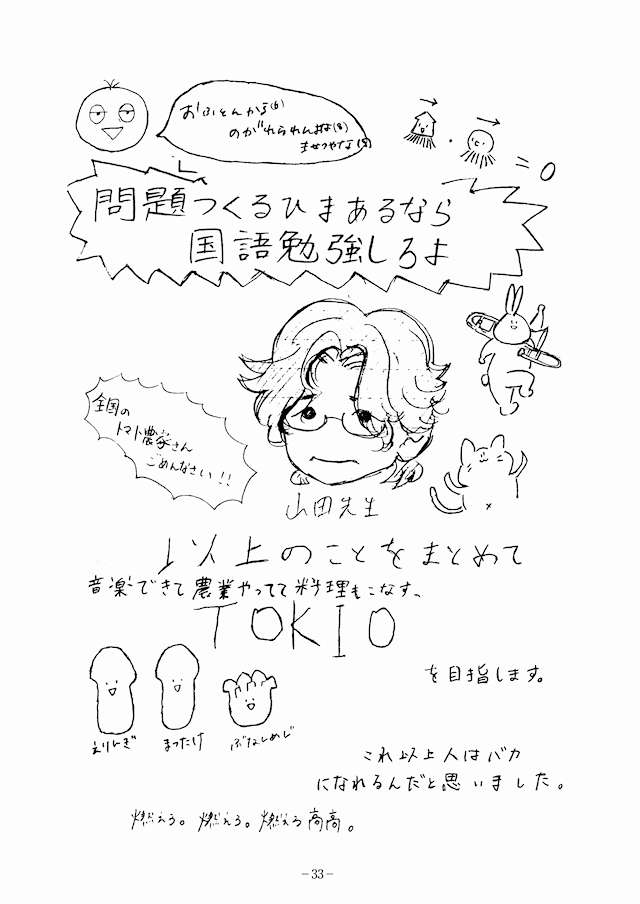 おふとんから(6)
のがれられんまな(8)
ませつやな(5)
→ →
・ =0
問題つくるひまあるなら
国語勉強しろよ
全国の
トマト農家さん
ごめんなさい!!
山田先生
以上のことをまとめて
音楽できて農業やってて料理もこなす、
TOKIO
を目指します。
えりんぎ まつたけ ぶなしめじ
これ以上人はバカ
になれるんだと思いました。
燃えろ。燃えろ。燃えろ高高。
-33-